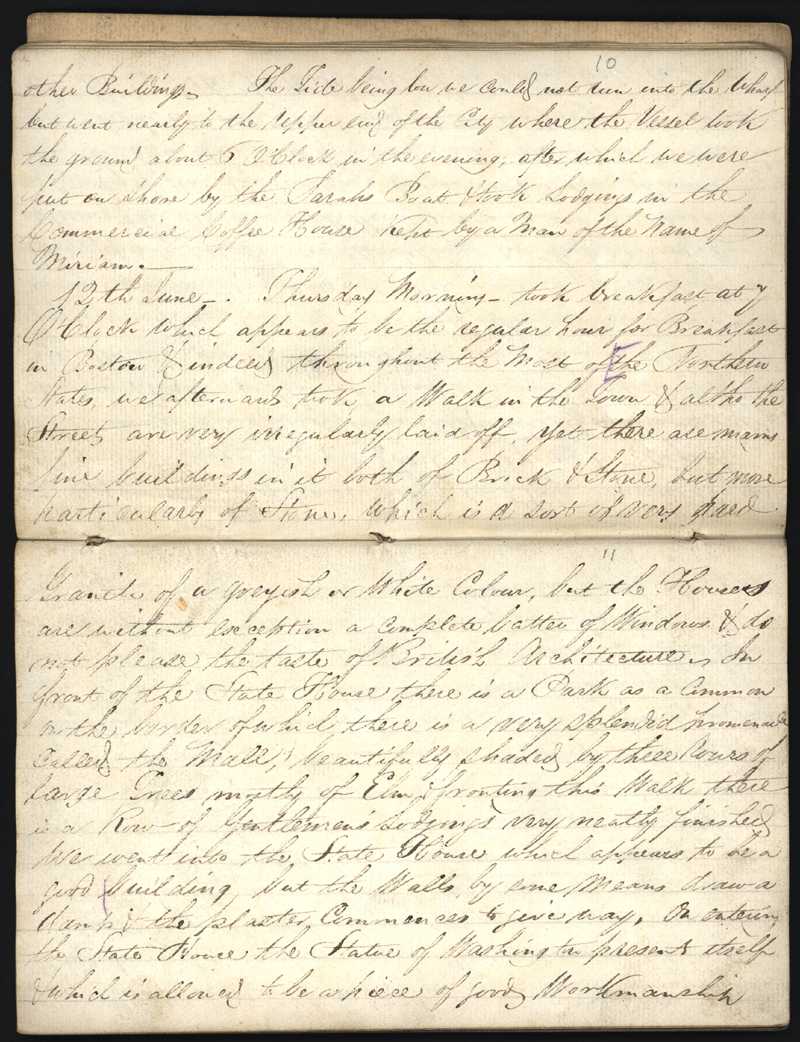 10
other Buildings. The Tide being low we could not run into the Wharf
but went nearly to the Upper end of the City where the Vessel took
the ground about 6 OClock in the evening, after which we were
put on Shore by the Sarahs Boat & took Lodgings in the
Commercial Coffee House Kept by a Man of the Name of
Miriam.—
12th June—. Thursday Morning— took breakfast at 7
OClock which appears to be the regular hour for Breakfast
in Boston & indeed throughout the Most of the Northern
States, we afterwards took a Walk in the Town & altho the
Streets are very irregularly laid off, yet there are many
fine buildings in it both of Brick & Stone, but more
particularly of Stone, which is a sort of very hard
11
Granite of a greyish or White Colour, but the Houses
are without exception a complete batter of Windows & do
not please the taste of British Architecture. In
front of the State House there is a Park as a Common
on the border of which there is a very splendid promenade
Called the Mall, beautifully shaded by three Rows of
large Trees mostly of Elm, fronting this Walk there
is a Row of Gentlemen's Lodgings very neatly finished
We went into the State House which appears to be a
good building, but the Walls by some Means draw a
damp & the plaster Commences to give way, On entering
the State House the Statue of Washington presents itself
& which is allowed to be a piece of good Workmanship